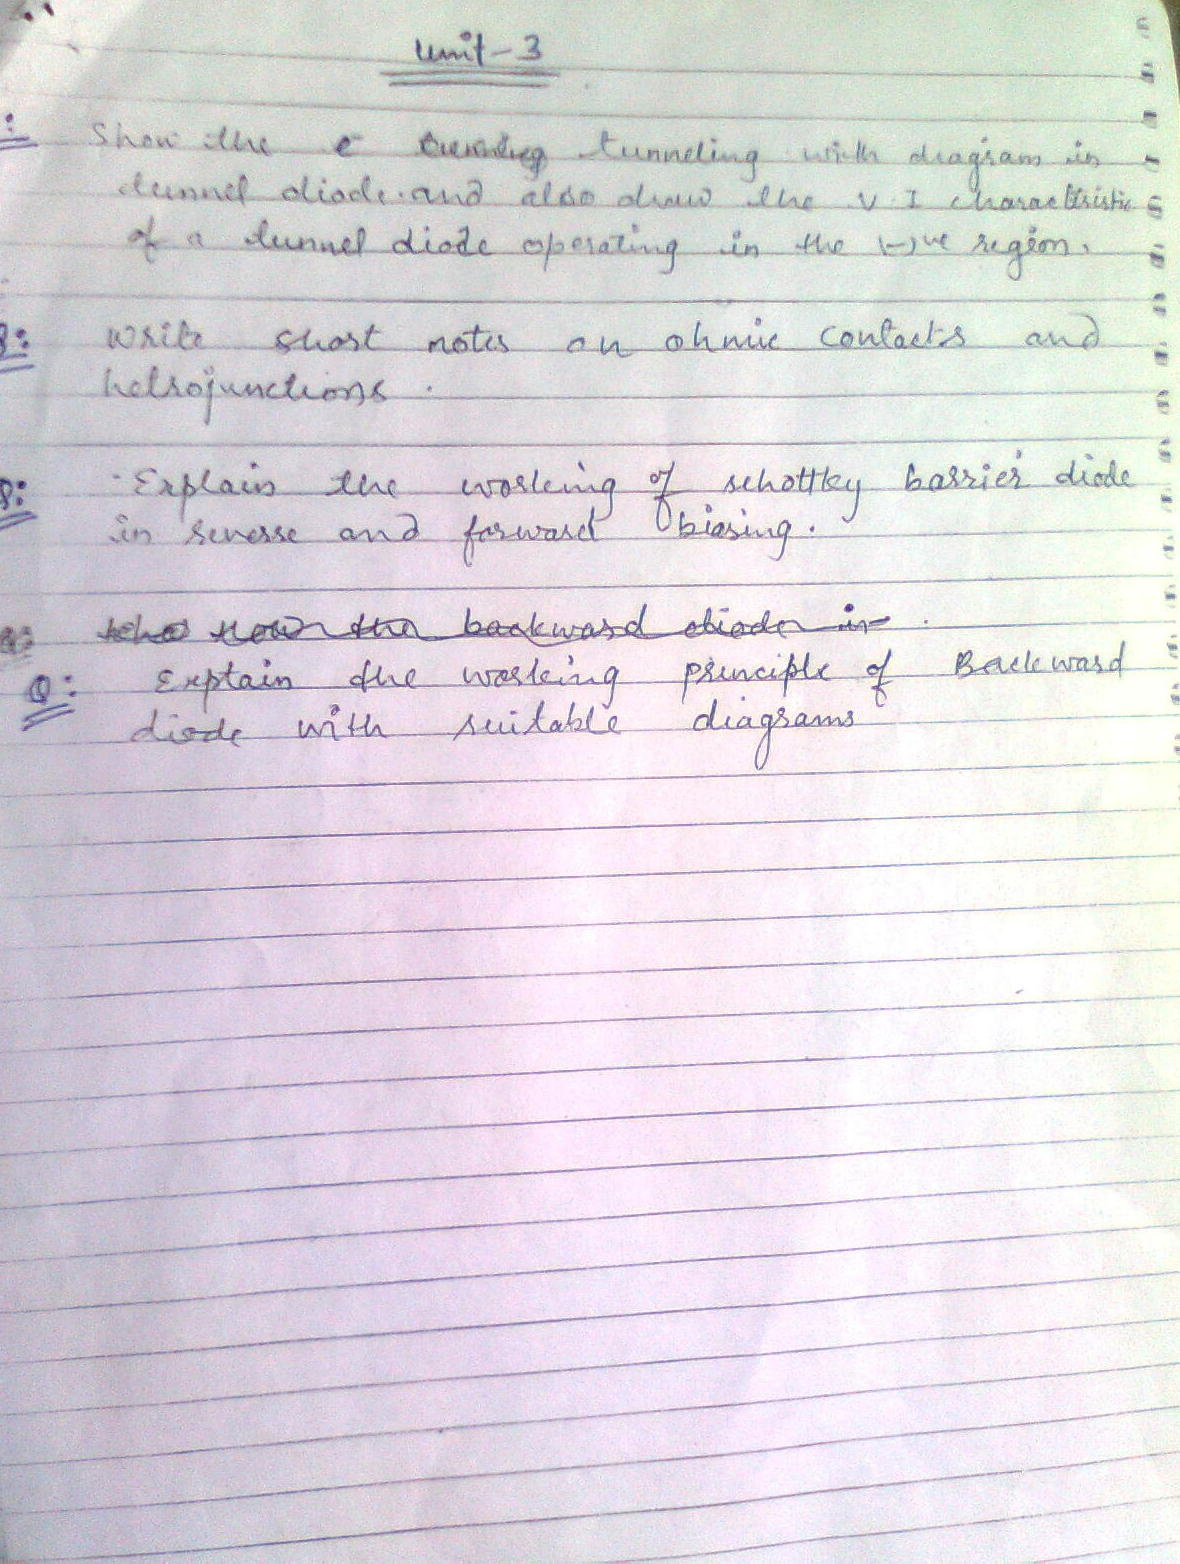 Unit-3
: Show the e tunneling with diagram in
tunnel diode. and also draw the V I characttristic
of a tunnel diode operating in the (-)ve region.
Q: Write short notes on ohmic contacts and
hetrojunctions.
Q: Explain the working of schottky barrier diode
in reverse and forward biasing.
Q: the backward diode in
Q: Explain the working principle of Backward
diode with suitable diagrams